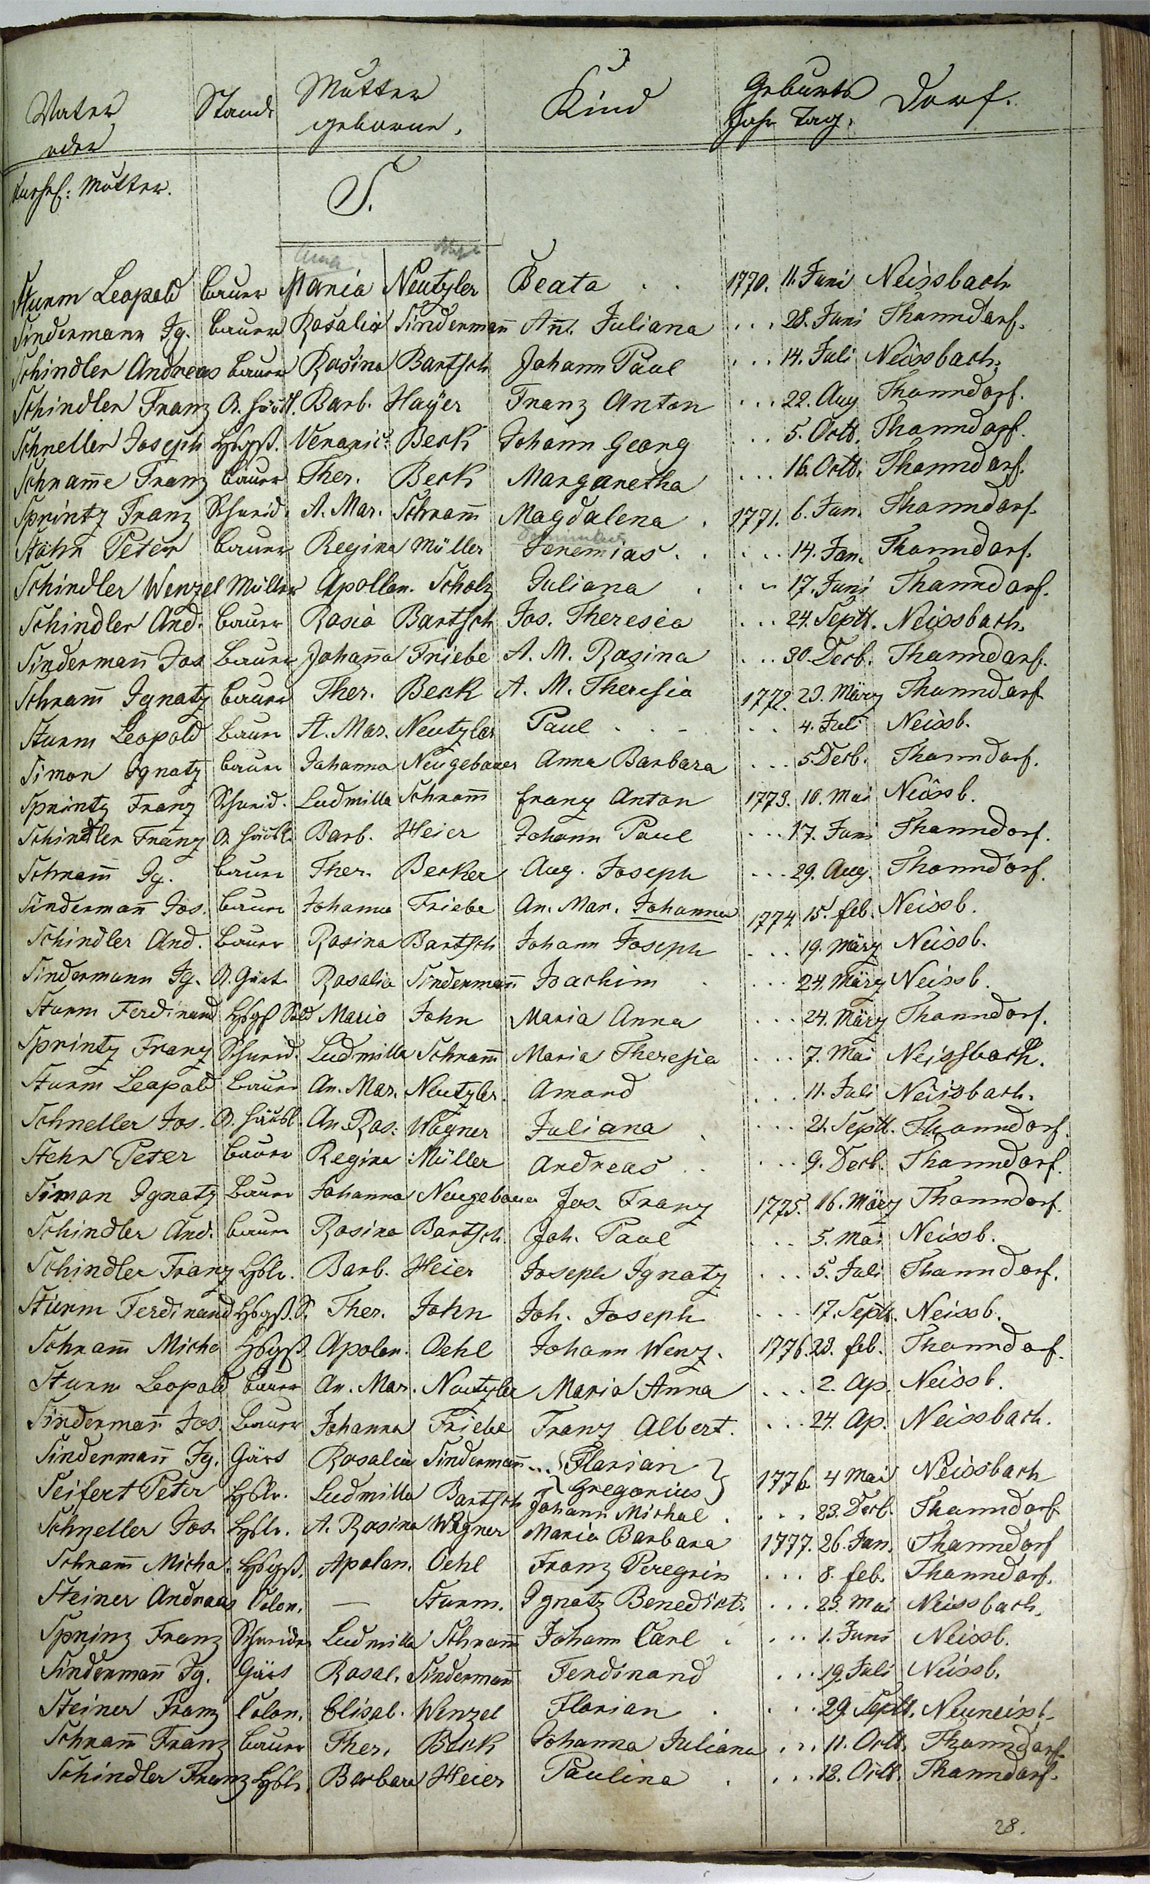 Vater Stand Mutter Kind Geburts Dorf.
oder geborne. Jahr Tag.
Mutter.
S.
Anna
Sturm Leopold Bauer Maria Neutzler Beata . . 1770. 11. Juni Neissbach
Sindermann Ig. Bauer Rosalia Sindermañ Añ. Juliana ... 28. Juni Thanndorf.
Schindler Andreas Bauer Rosina Bartsch Johann Paul ... 14. Juli Neissbach.
Schindler Franz A. Häusl. Barb. Hayer Franz Anton ... 22. Aug Thanndorf.
Schneller Joseph Hsgß. Veronic. Beck Johann Georg .. 5. Octb. Thanndorf.
Schrame Franz Bauer Ther. Beck Margaretha ... 16. Octb. Thanndorf.
Sprintz Franz Schneid. A. Mar. Schram̅ Magdalena . 1771. 6. Jan. Thanndorf.
Peter Bauer Regina Müller Jeremias . . ... 14. Jan. Thanndorf.
Schindler Wenzel Müller Apollon. Scholz Juliana . .. 17. Juni Thanndorf.
Schindler And. Bauer Rosia Bartsch Jos. Theresia ... 24. Septb. Neissbach.
Sindermañ Jos Bauer Johaña Friebe A. M. Rosina ... 30. Decb. Thanndorf.
Schram̅ Ignatz Bauer Ther. Beck A. M. Theresia 1772. 23. März Thanndorf
Sturm Leopold Bauer A. Mar. Neutzler Paul . . . .. 4. Juli Neissb.
Simon Ignatz Bauer Johanna Neugebauer Anna Barbara ... 5 Decb. Thanndorf.
Sprintz Franz Schneid. Ludmilla Schram̅ Franz Anton 1773. 10. Mai Neissb.
Schindler Franz A. Häusl. Barb. Heier Johann Paul ... 17. Juni Thanndorf.
Schram̅ Ig. Bauer Ther. Becker Aug. Joseph ... 29. Aug. Thanndorf.
Sindermañ Jos. Bauer Johanna Friebe An. Mar. Johanna 1774 15. feb. Neissb.
Schindler And. Bauer Rosina Bartsch Johann Joseph ... 19. März Neissb.
Sindermann Ig. A. Gärt. Rosalia Sindermañ Joachim . ... 24. März Neissb.
Sturm Ferdinand Hsgß Sold Maria John Maria Anna ... 24. März Thanndorf.
Sprintz Franz Schneid. Ludmilla Schram̅ Maria Theresia ... 7. Mai Neissbach.
Sturm Leopold Bauer An. Mar. Neutzler. Amand ... 11. Juli Neissbach.
Schneller Jos. A. Häusl. An. Ros. Wagner Juliana . ... 21. Septb. Thanndorf.
Stehr Peter Bauer Regina Müller Andreas . . ... 9. Decb. Thanndorf.
Simon Ignatz Bauer Johanna Neugebauer Jos. Franz 1775. 16. März Thanndorf.
Schindler And. Bauer Rosina Bartsch. Joh. Paul ... 5. Mai Neissb.
Schindler Franz Hslr. Barb. Heier Joseph Ignatz ... 5. Juli Thanndorf.
Sturm Ferdinand Hsgß. S. Ther. John Joh. Joseph ... 17. Septb. Neissb.
Schram̅ Micha Hsgß Apolon. Oehl Johann Wenz. 1776. 23. feb. Thanndorf.
Sturm Leopold Bauer An. Mar. Neutzler Maria Anna ... 2. Ap. Neissb.
Sindermañ Jos. Bauer Johanna Friebe Franz Albert. ... 24. Ap. Neissbach.
Sindermañ Ig. Gärt Rosalia Sindermañ ... { Florian } 1776 4 Mai Neissbach
{ Gregorius }
Seifert Peter Hslr. Ludmilla Bartsch Johann Michal . ... 23. Decb. Thanndorf
Schneller Jos. Hslr. A. Rosina Wagner Maria Barbara 1777. 26. Jan. Thanndorf
Schram̅ Micha. Hsgß. Apolon. Oehl Franz Peregrin ... 8. feb. Thanndorf.
Steiner Andreas Colon. — Sturm. Ignatz Benedict. ... 23. Mai Neissbach.
Sprinz Franz Schneider Ludmilla Schram̅ Johann Carl . ... 1. Juni Neissb.
Sindermañ Ig. Gärt Rosal. Sindermañ Ferdinand ... 19. Juli Neissb.
Steiner Franz Colon. Elisab. Wenzel Florian . ... 29. Septb. Neuneissb.
Schram̅ Franz Bauer Ther. Beck Johanna Juliana ... 11. Octb. Thanndorf.
Schindler Franz Hslr. Barbara Heier Paulina . ... 12. Octb. Thanndorf.
28.